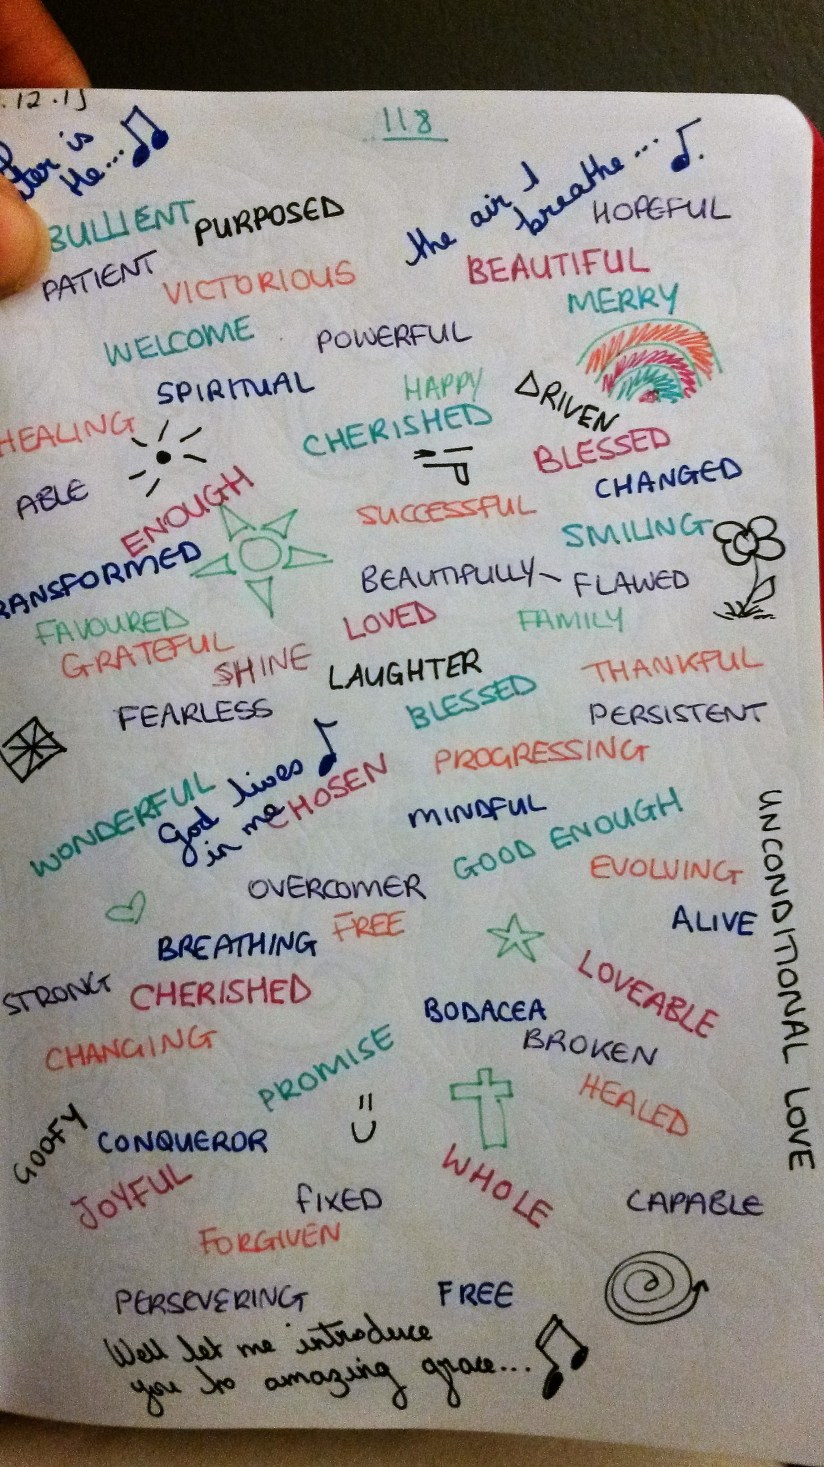 .12.15
118
is
He...
the air I
breathe...
BULLIENT
PURPOSED
HOPEFUL
PATIENT
VICTORIOUS
BEAUTIFUL
MERRY
WELCOME
POWERFUL
SPIRITUAL
HAPPY
DRIVEN
HEALING
CHERISHED
BLESSED
ABLE
CHANGED
ENOUGH
SUCCESSFUL
SMILING
RANSFORMED
BEAUTIFULLY-FLAWED
FAVOURED
LOVED
FAMILY
GRATEFUL
SHINE
LAUGHTER
THANKFUL
FEARLESS
BLESSED
PERSISTENT
PROGRESSING
WONDERFUL
God lives
in me
CHOSEN
MINDFUL
GOOD ENOUGH
UNCONDITIONAL LOVE
OVERCOMER
EVOLVING
FREE
ALIVE
BREATHING
STRONG
CHERISHED
LOVEABLE
BODACEA
CHANGING
BROKEN
PROMISE
HEALED
GOOFY
CONQUEROR
JOYFUL
FIXED
WHOLE
CAPABLE
FORGIVEN
PERSEVERING
FREE
Well let me introduce
you to amazing grace...